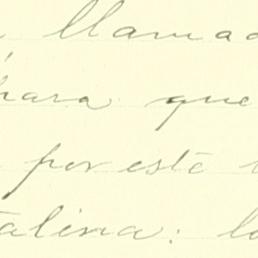 llamad
para que
por este
talina: lo